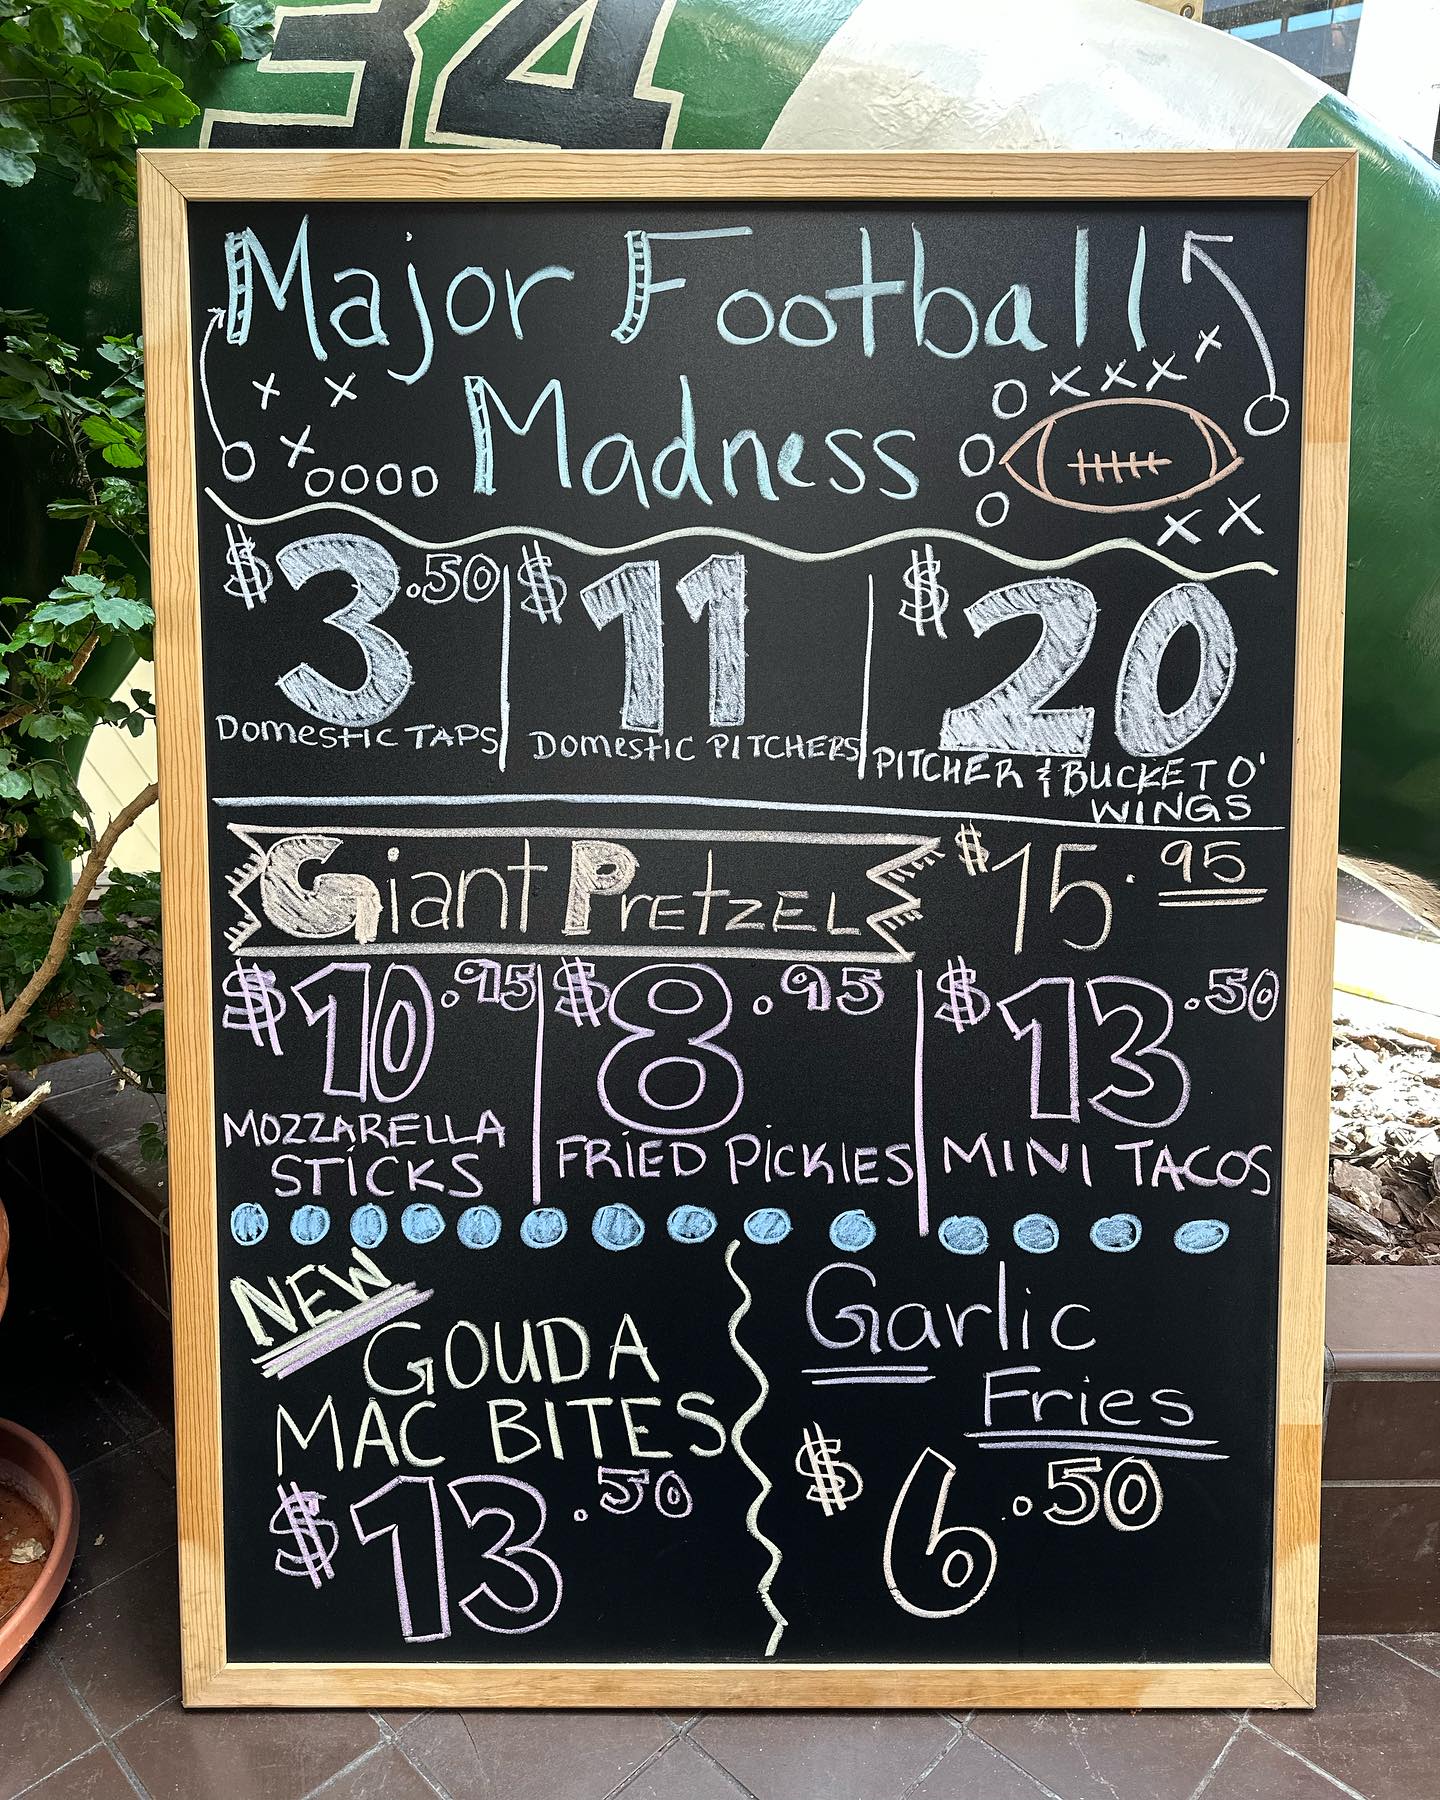 34
Major Football
Madness
$3.50 $11 $20
Domestic TAPS Domestic PITCHERS PITCHER & BUCKET O'
WINGS
Giant PRETZEL $15.95
$10.95 $8.95 $13.50
MOZZARELLA
STICKS FRIED PICKLES MINI TACOS
NEW
GOUDA
MAC BITES
$13.50
Garlic
Fries
$6.50